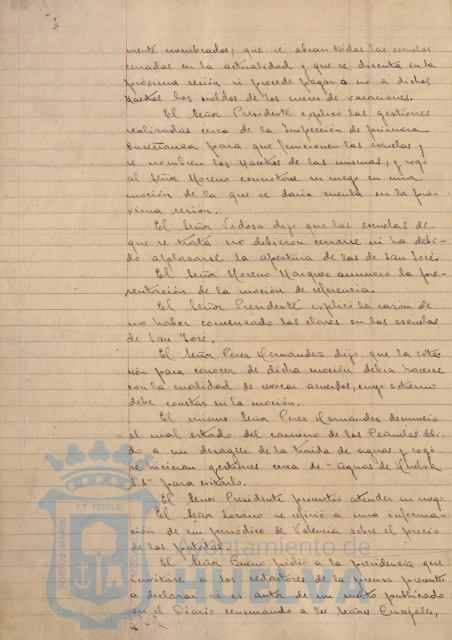 mente nombrados, que se abran todas las escuelas
cerradas en la actualidad y que se discuta en la
próxima sesión si procede pagar o no a dichos
Maestros los sueldos de los meses de vacaciones.
El Señor Presidente explicó las gestiones
realizadas cerca de la Inspección de primera
Enseñanza para que funcionen las escuelas y
se nombren los Maestros de las mismas, y rogó
al Señor Moreno concretase su ruego en una
moción de la que se daría cuenta en la pró-
xima sesión.
El Señor Vidosa dijo que las escuelas de
que se trata no debieron cerrarse ni ha debi-
do aplazarse la apertura de las de San José.
El Señor Moreno Marquez anunció la pre-
sentación de la moción de referencia.
El Señor Presidente explicó la razón de
no haber comenzado las clases en las escuelas
de San José.
El Señor Perez Hernandez dijo que la cita-
ción para conocer de dicha moción debía hacerse
con la cualidad de revocar acuerdos, cuyo extremo
debe constar en la moción.
El mismo Señor Perez Hernandez denunció
el mal estado del camino de las Peñuelas debi-
do a un desagüe de la traida de aguas y rogó
se hicieran gestiones cerca de "Aguas de Huelva
para evitarlo.
El Señor Presidente prometió atender su ruego.
El Señor Lozano se refirió a una informa-
ción de un periódico de Valencia sobre el precio
de las patatas.
El Señor Bueno pidió a la presidencia que
invitase a los redactores de la prensa presentes
a declarar si es autor de un suelto publicado
en el Diario censurando a los Señores Concejales,
ET TERRAE
PORTUS MARIS
Ayuntamiento de
HUELVA